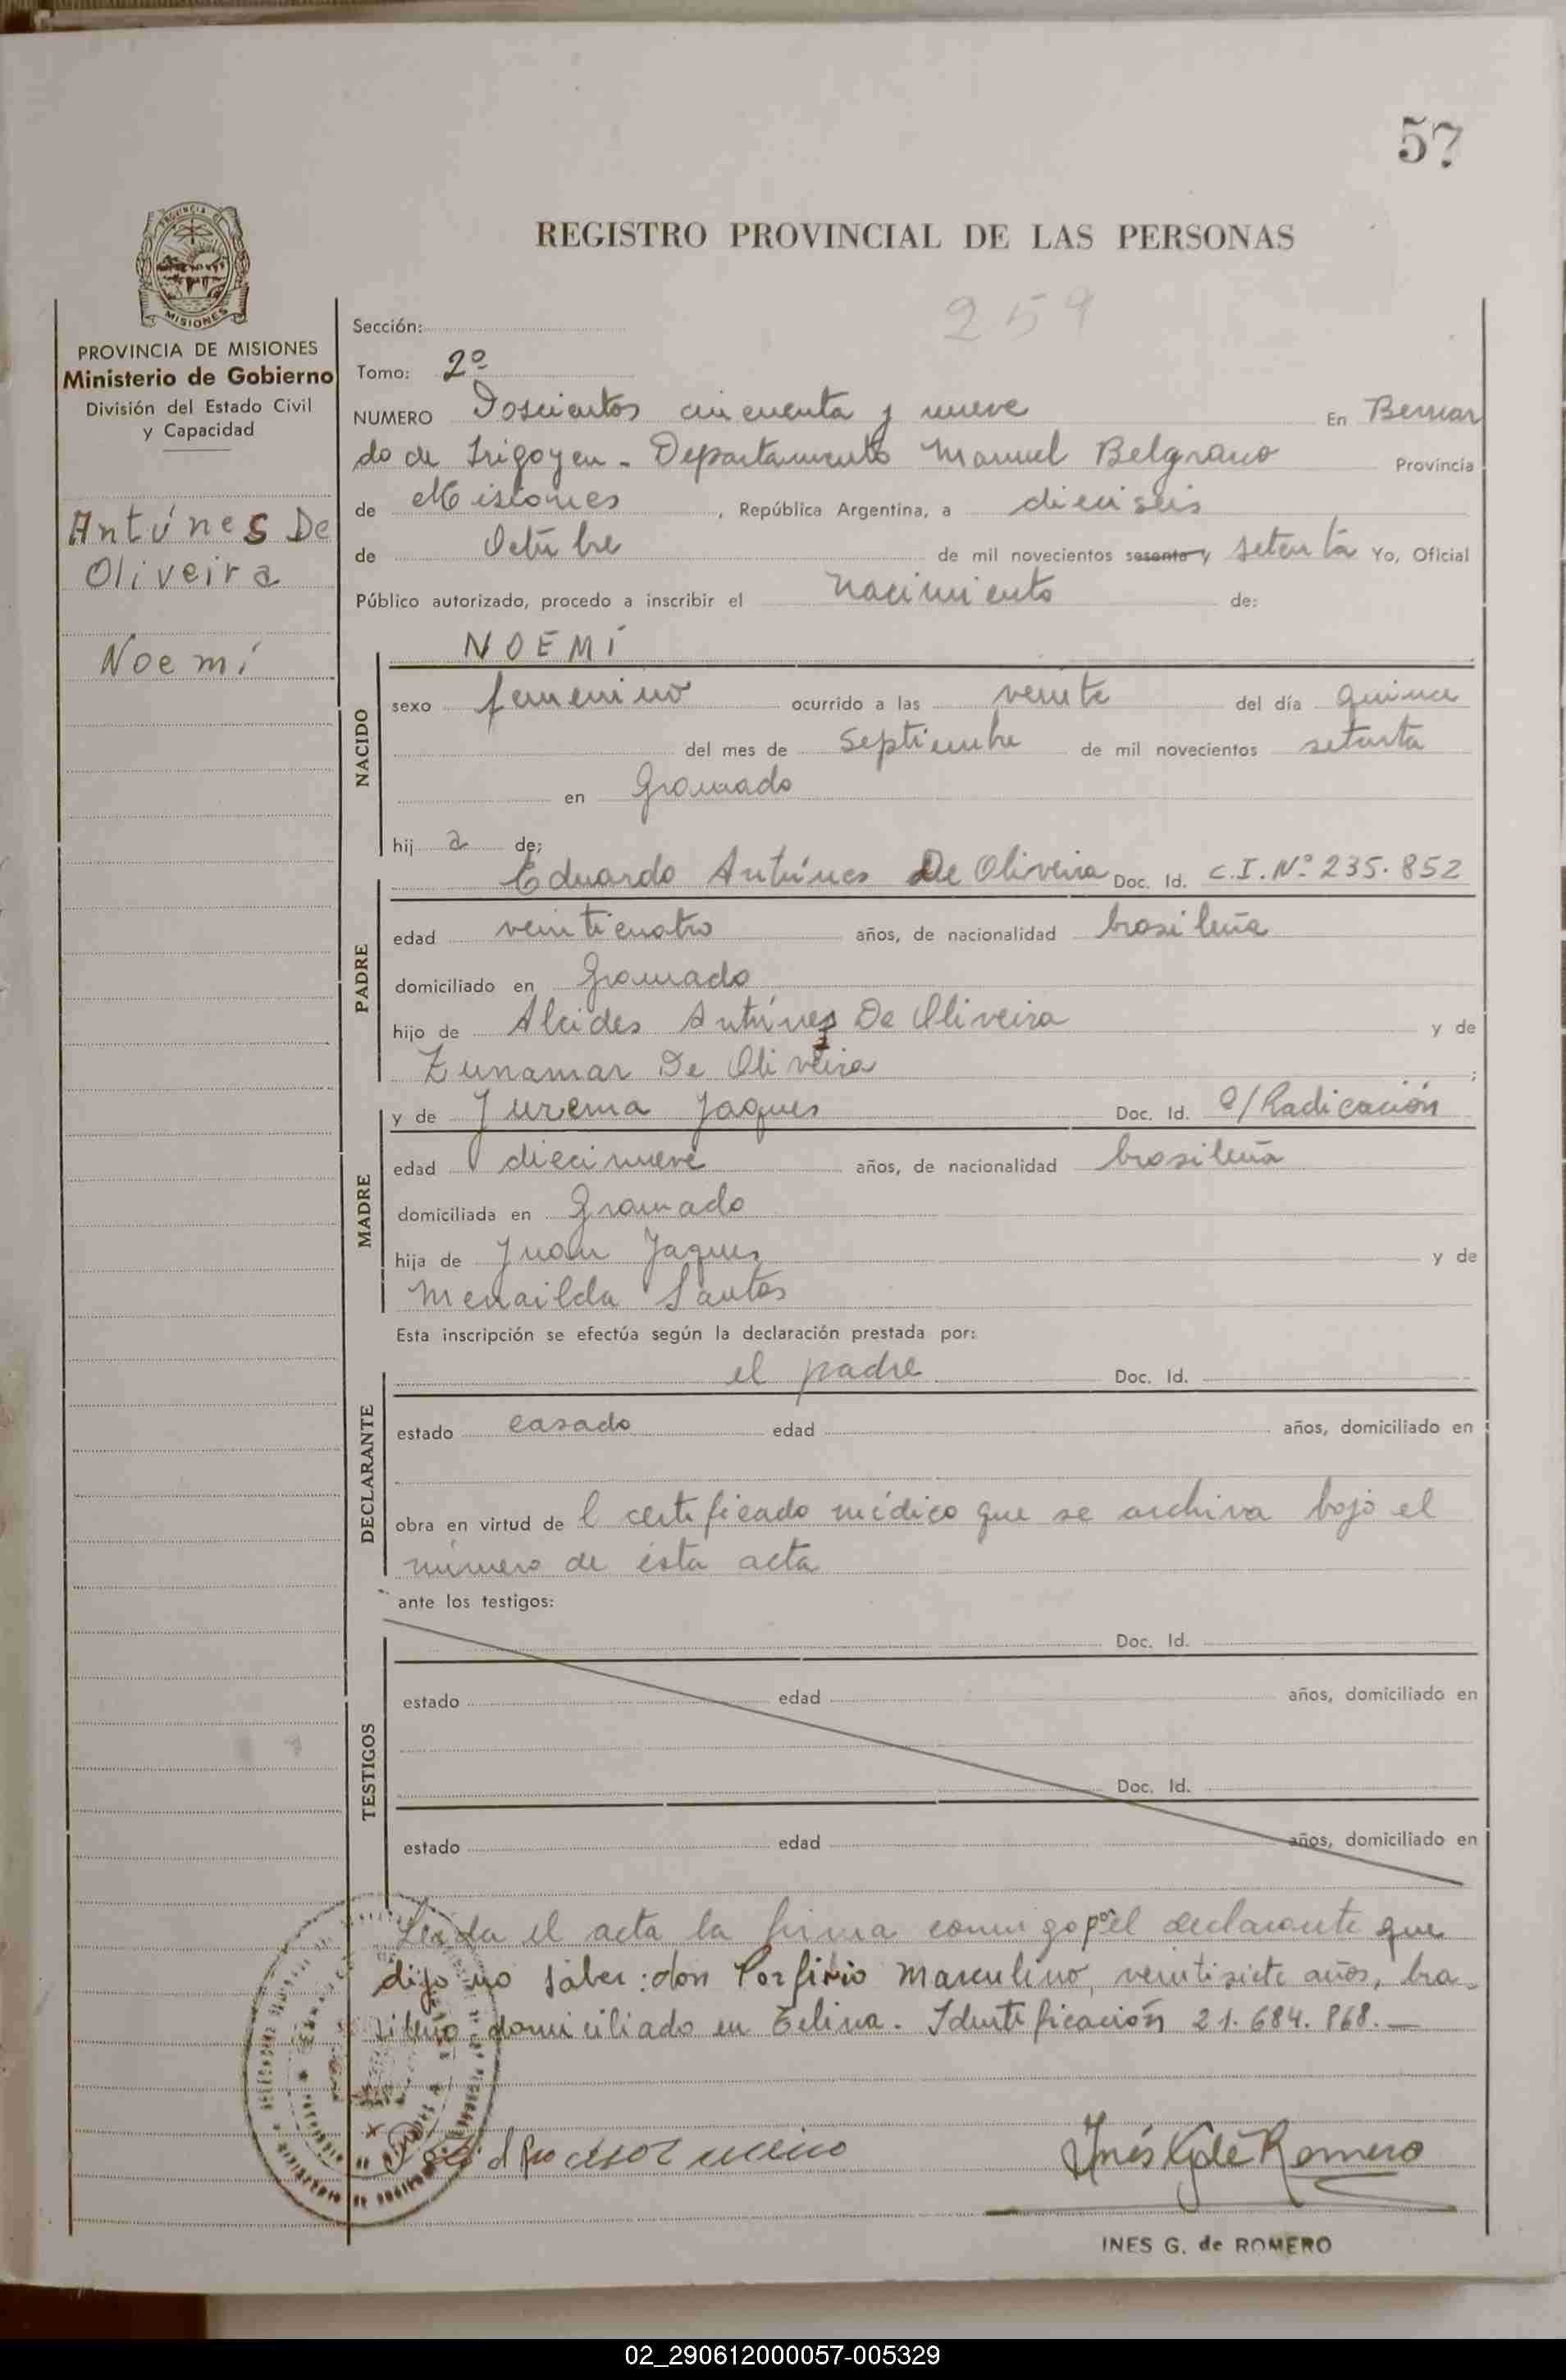 57
REGISTRO PROVINCIAL DE LAS PERSONAS
259
PROVINCIA DE MISIONES
Ministerio de Gobierno
División del Estado Civil
y Capacidad
Antúnes De
Oliveira
Noemí
Sección:
Tomo: 2º
NUMERO Doscientos cincuenta y nueve En Bernar
do de Irigoyen - Departamento Manuel Belgrano Provincia
de Misiones, República Argentina, a dieciseis
de Octubre de mil novecientos sesenta y setenta Yo, Oficial
Público autorizado, procedo a inscribir el nacimiento de:
NOEMÍ
NACIDO
sexo femenino ocurrido a las veinte del día quince
del mes de septiembre de mil novecientos setenta
en Gramado
hija de;
PADRE
Eduardo Antúnes De Oliveira Doc. Id. C.I.Nº 235.852
edad veinticuatro años, de nacionalidad brasileña
domiciliado en Gramado
hijo de Alcides Antúnes De Oliveira y de
Zunamar De Oliveira;
MADRE
y de Jurema Jaques Doc. Id. C/Radicación
edad diecinueve años, de nacionalidad brasileña
domiciliada en Gramado
hija de Juan Jaques y de
Menailda Santos
Esta inscripción se efectúa según la declaración prestada por:
DECLARANTE
el padre Doc. Id.
estado casado edad años, domiciliado en
obra en virtud del certificado médico que se archiva bajo el
número de ésta acta
ante los testigos:
TESTIGOS
Doc. Id.
estado edad años, domiciliado en
Doc. Id.
estado edad años, domiciliado en
Leída el acta la firma conmigo por el declarante que
dijo no saber: don Porfirio Marculino, veintisiete años, bra-
sileño domiciliado en Celina. Identificación 21.684.868.—
Inés G de Romero
INES G. de ROMERO
02_290612000057-005329